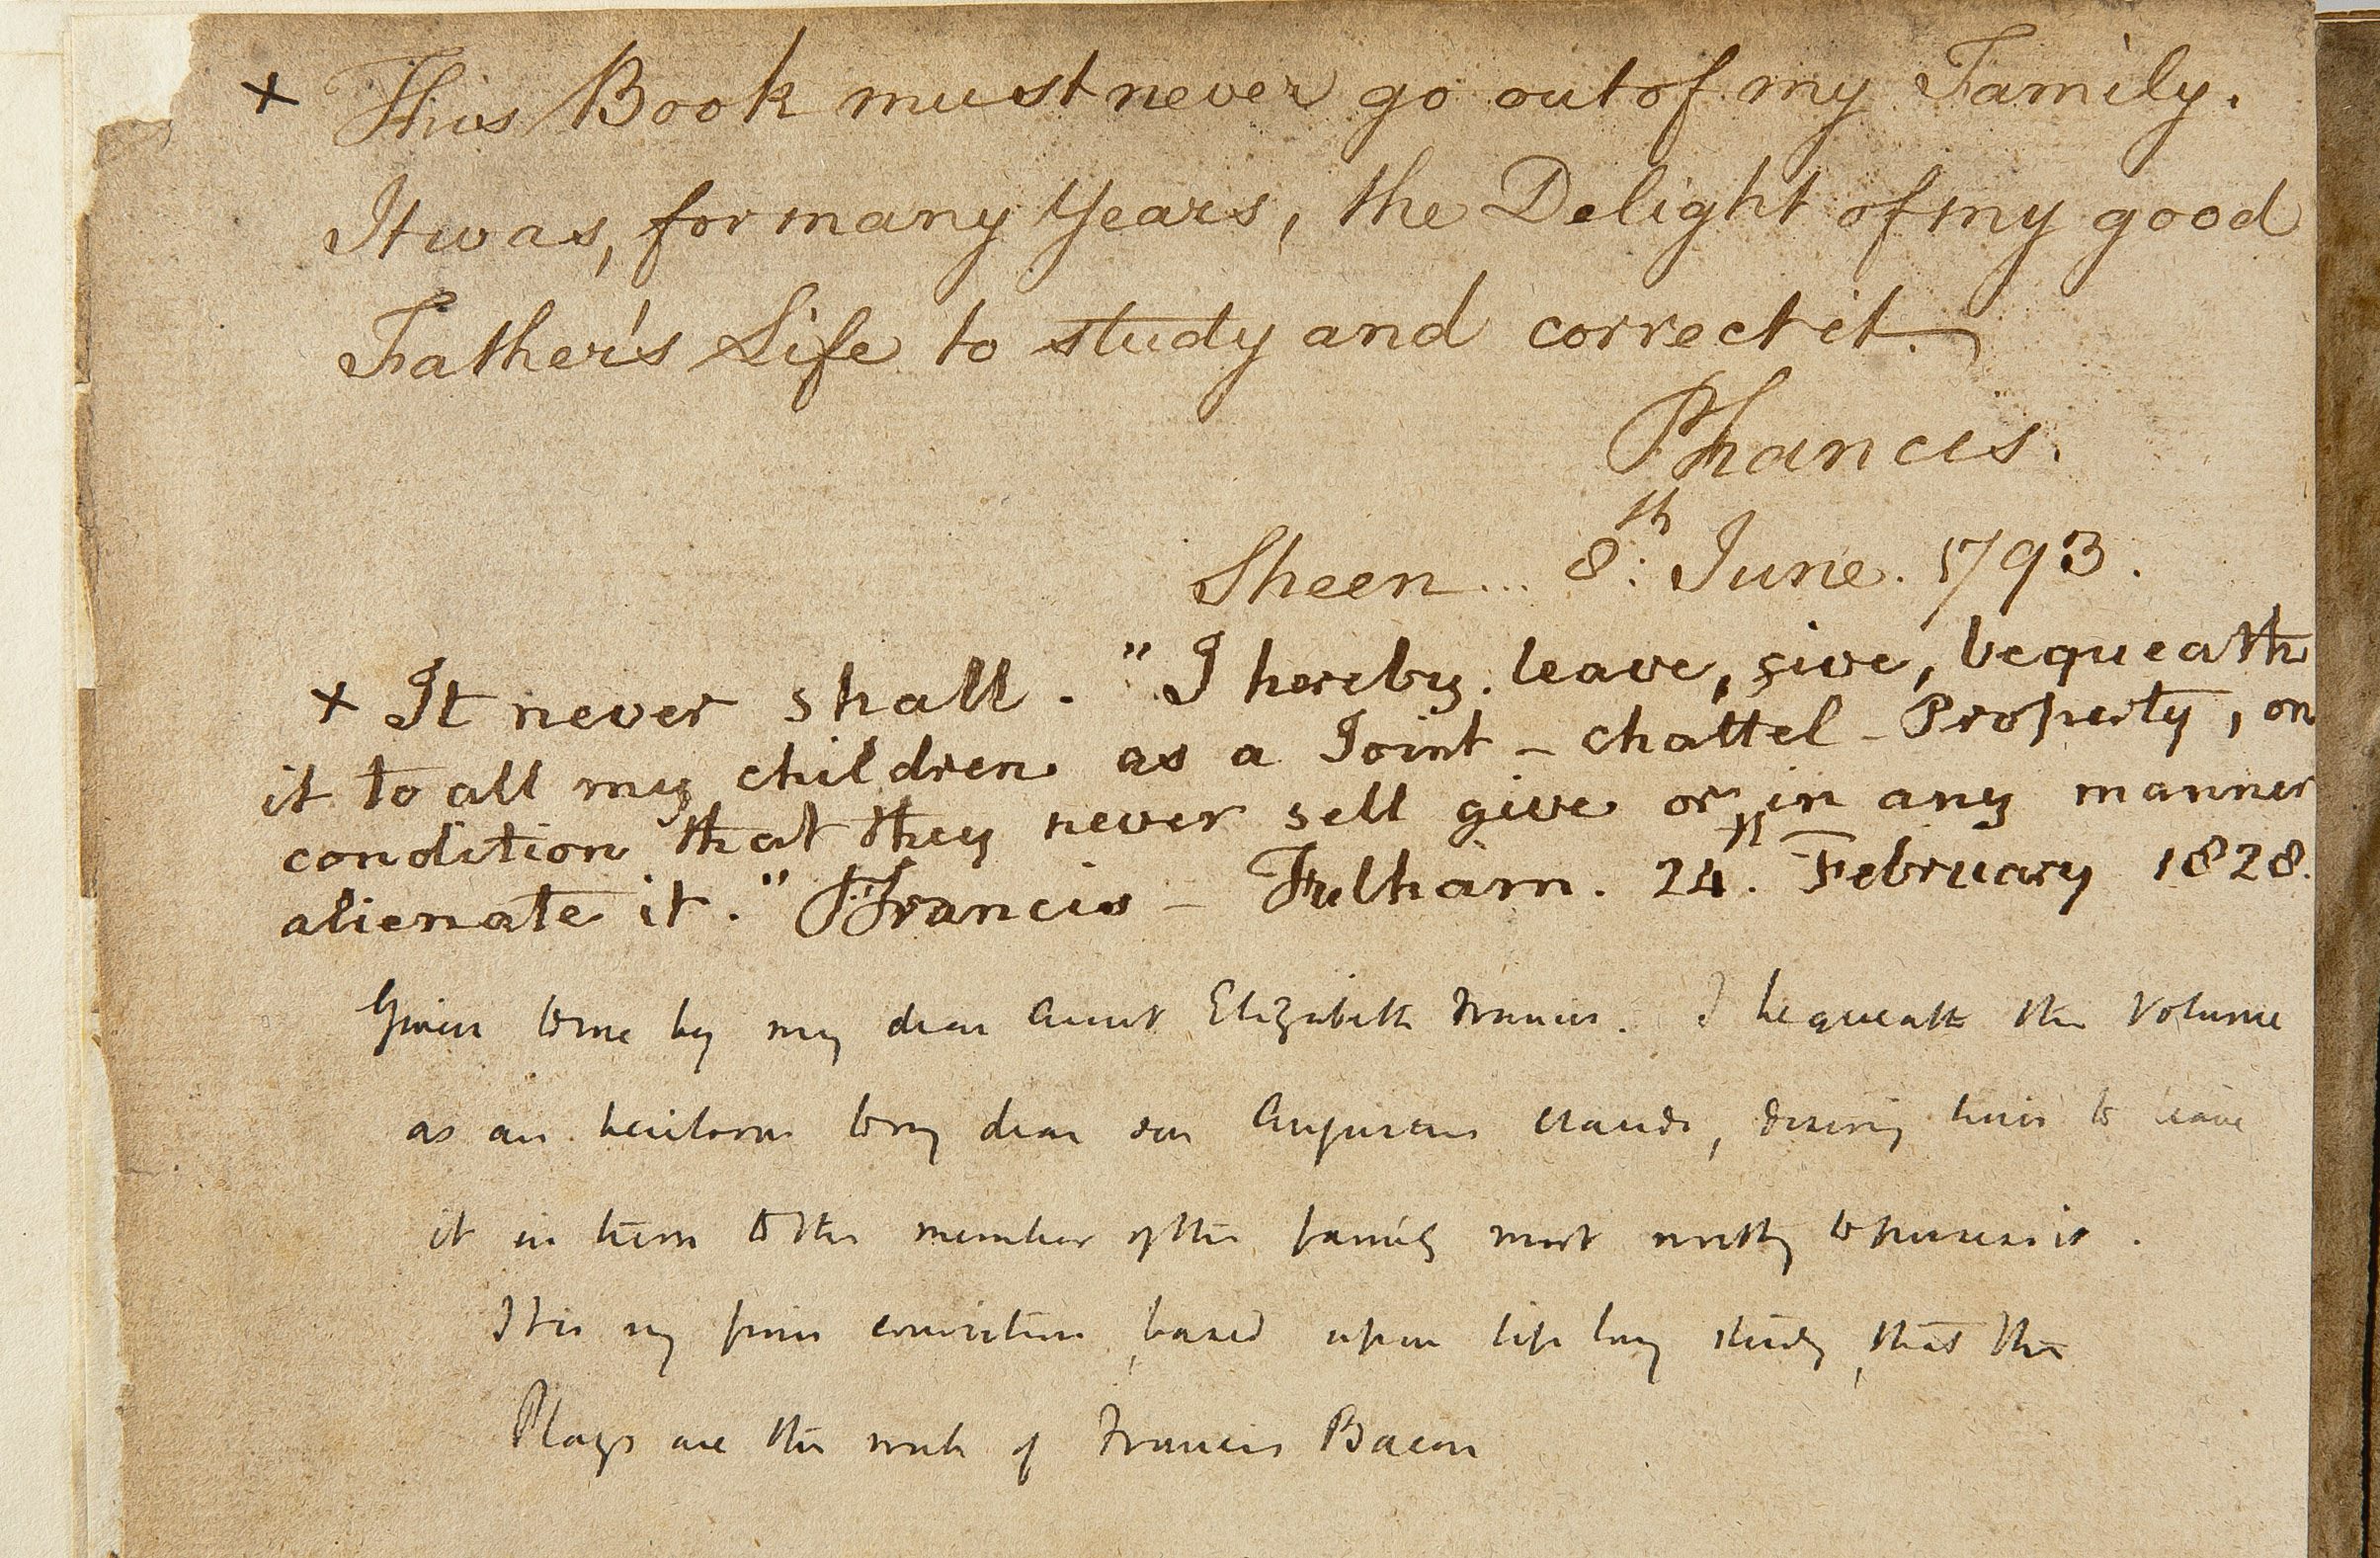 + This Book must never go out of my Family.
It was, for many Years, the Delight of my good
Father's Life to study and correct it.
PFrancis.
Sheen... 8:th June. 1793.
+ It never shall. "I hereby leave, give, bequeath
it to all my children as a Joint - chattel - Property, on
condition that they never sell give or in any manner
alienate it." PFrancis - Fulham. 24th. February 1828.
Given to me by my dear Aunt Elizabeth Francis. I bequeath this Volume
as an heirloom to my dear son Augustus Claude, desiring him to leave
it in turn to the member of the family most worthy to possess it.
It is my firm conviction, based upon life long study, that the
Plays are the work of Francis Bacon